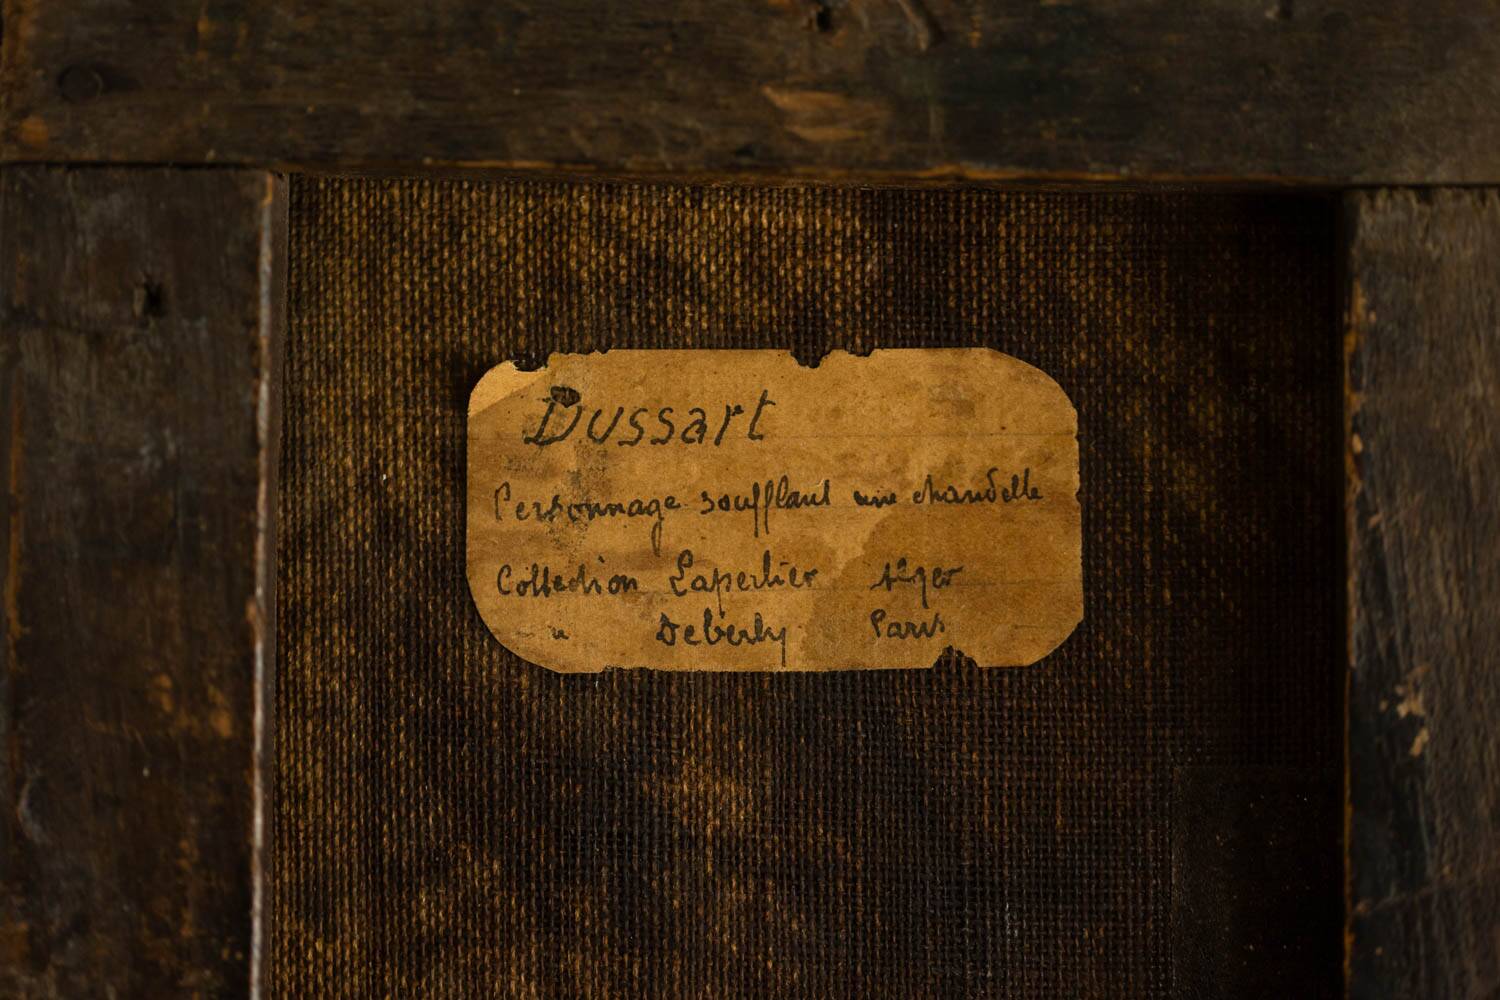 Dussart
Personnage soufflant une chandelle
Collection Lapertier Alger
" Deberly Paris